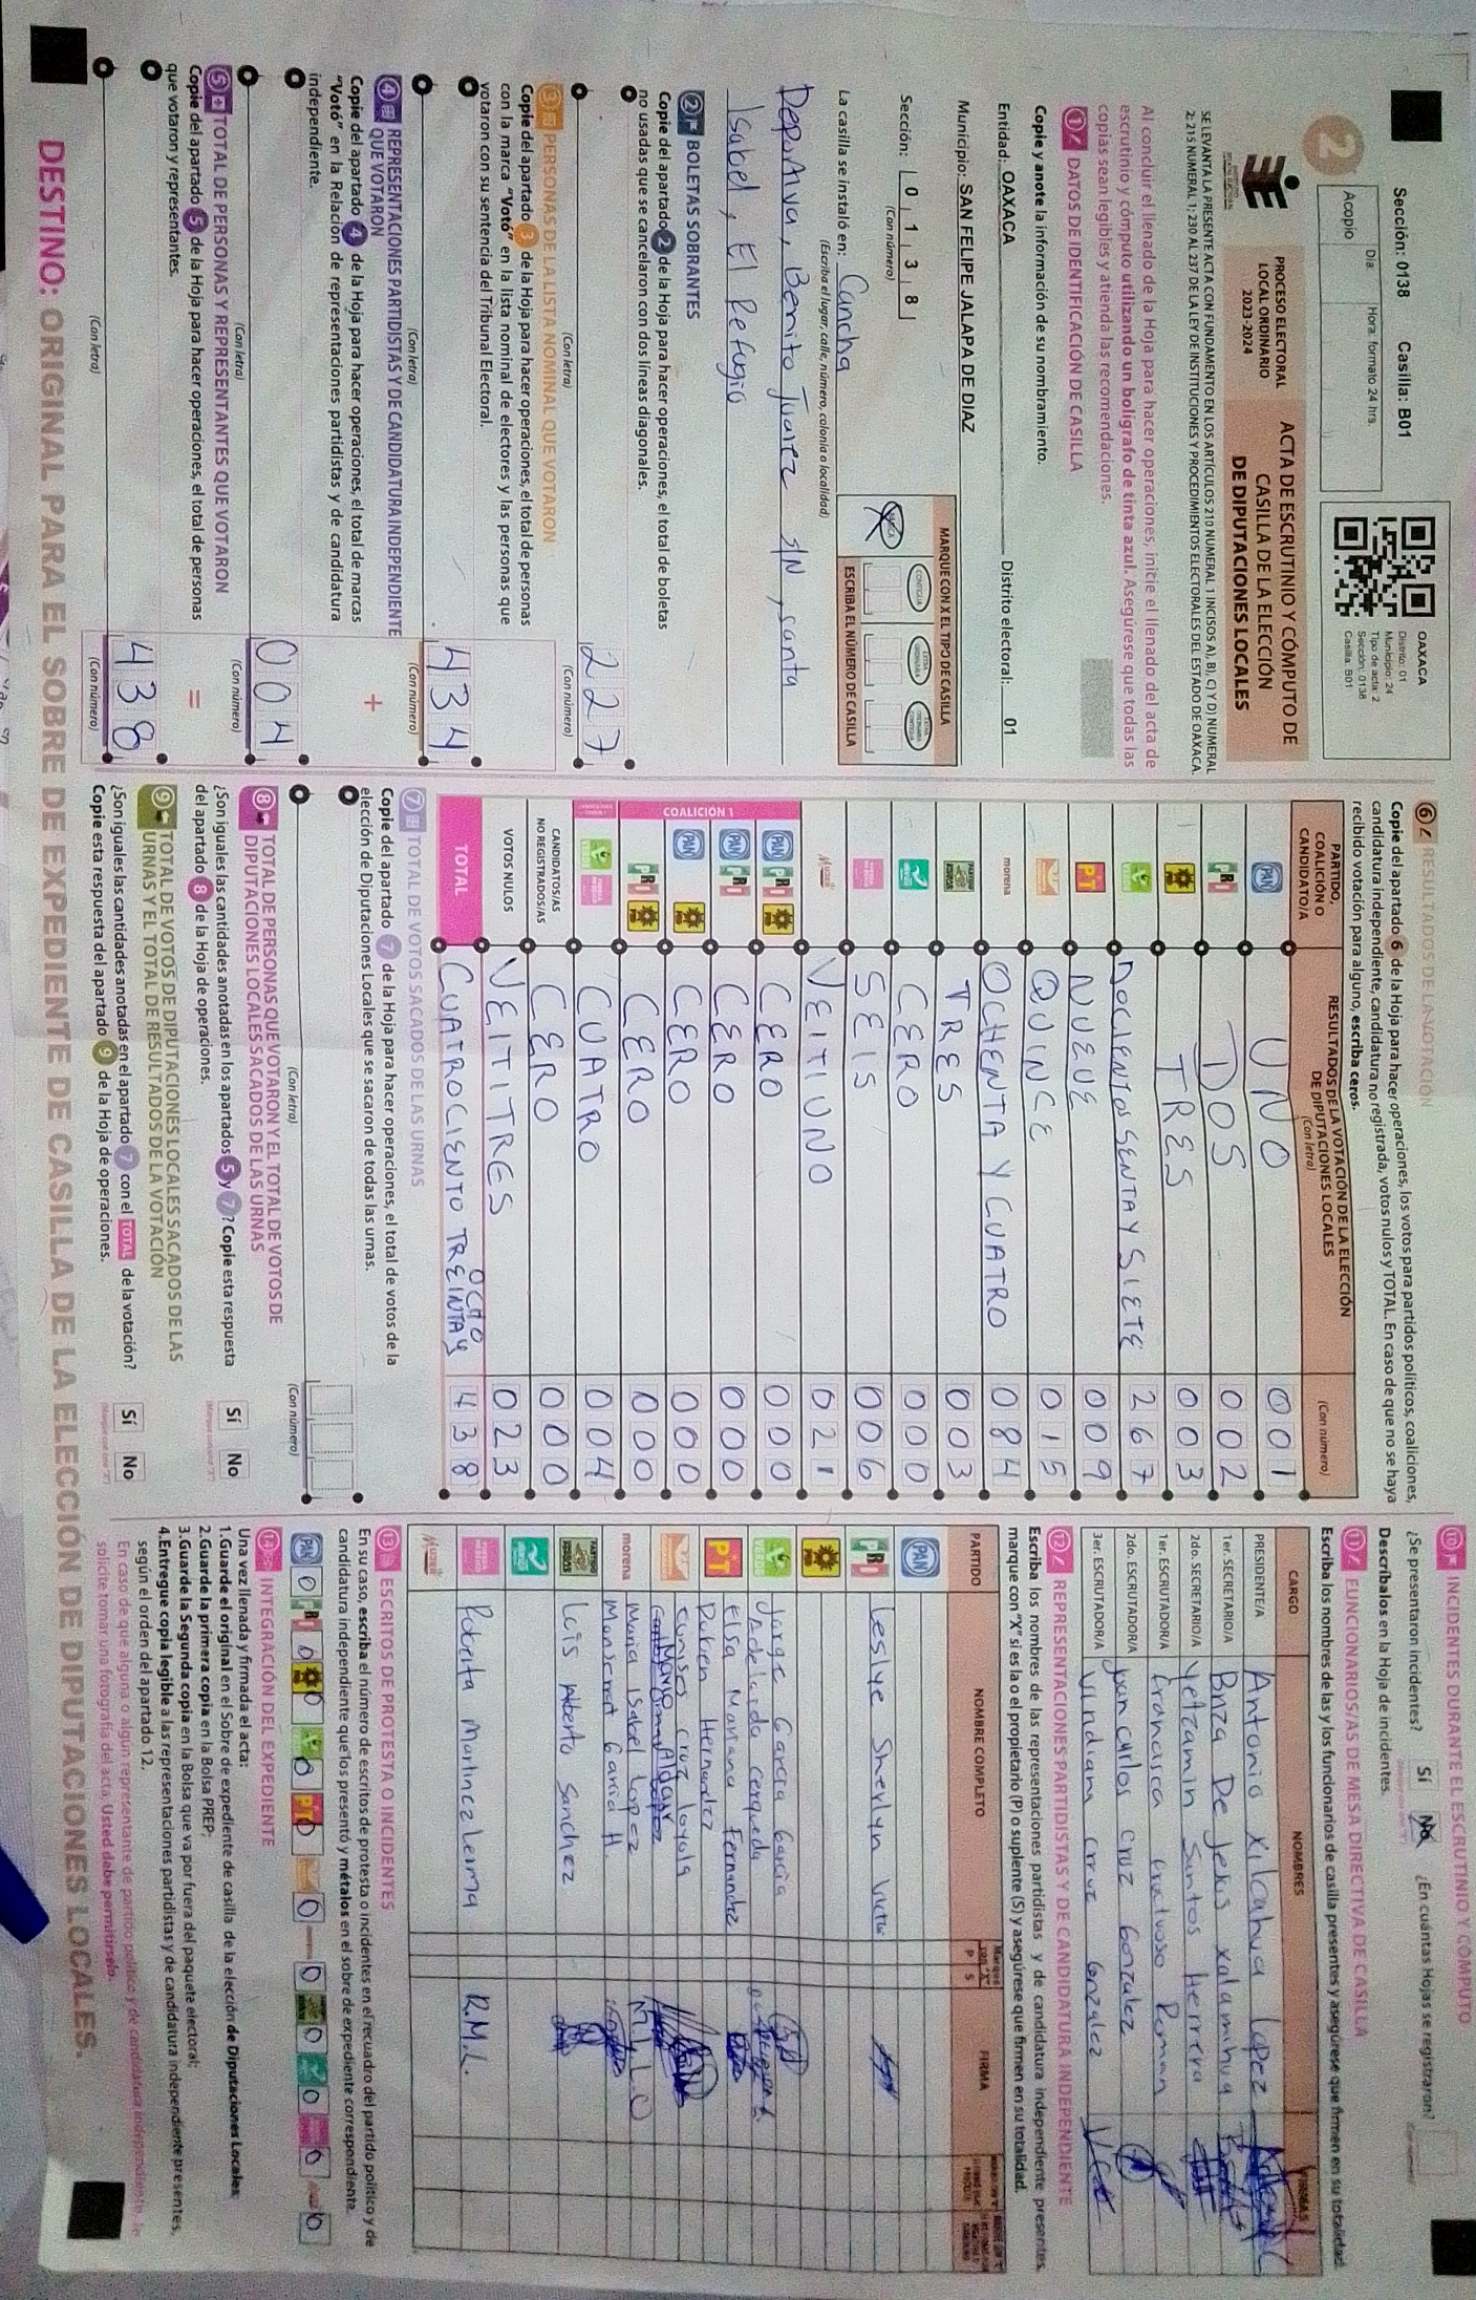 Sección: 0138 Casilla: B01
Día: Hora: formato 24 hrs.
Acopio
2
OAXACA
Distrito: 01
Municipio: 24
Tipo de acta: 2
Sección: 0138
Casilla: B01
PROCESO ELECTORAL
LOCAL ORDINARIO
2023-2024
ACTA DE ESCRUTINIO Y CÓMPUTO DE
CASILLA DE LA ELECCIÓN
DE DIPUTACIONES LOCALES
SE LEVANTA LA PRESENTE ACTA CON FUNDAMENTO EN LOS ARTÍCULOS 210 NUMERAL 1 INCISOS A), B), C) Y D) NUMERAL
2; 215 NUMERAL 1; 230 AL 237 DE LA LEY DE INSTITUCIONES Y PROCEDIMIENTOS ELECTORALES DEL ESTADO DE OAXACA.
Al concluir el llenado de la Hoja para hacer operaciones, inicie el llenado del acta de
escrutinio y cómputo utilizando un bolígrafo de tinta azul. Asegúrese que todas las
copias sean legibles y atienda las recomendaciones.
1 DATOS DE IDENTIFICACIÓN DE CASILLA
Copie y anote la información de su nombramiento.
Entidad: OAXACA Distrito electoral: 01
Municipio: SAN FELIPE JALAPA DE DIAZ
Sección: 0 1 3 8
(Con número)
MARQUE CON X EL TIPO DE CASILLA
ESCRIBA EL NÚMERO DE CASILLA
La casilla se instaló en: Cancha
(Escriba el lugar, calle, número, colonia o localidad)
Deportiva, Benito Juarez S/N, santa
Isabel, El Refugio
2 BOLETAS SOBRANTES
Copie del apartado 2 de la Hoja para hacer operaciones, el total de boletas
no usadas que se cancelaron con dos líneas diagonales.
227
(Con letra) (Con número)
3 PERSONAS DE LA LISTA NOMINAL QUE VOTARON
Copie del apartado 3 de la Hoja para hacer operaciones, el total de personas
con la marca "Votó" en la lista nominal de electores y las personas que
votaron con su sentencia del Tribunal Electoral.
434
(Con letra) (Con número)
4 REPRESENTACIONES PARTIDISTAS Y DE CANDIDATURA INDEPENDIENTE
QUE VOTARON
+
Copie del apartado 4 de la Hoja para hacer operaciones, el total de marcas
"Votó" en la Relación de representaciones partidistas y de candidatura
independiente.
004
(Con letra) (Con número)
5 TOTAL DE PERSONAS Y REPRESENTANTES QUE VOTARON
=
Copie del apartado 5 de la Hoja para hacer operaciones, el total de personas
que votaron y representantes.
438
(Con letra) (Con número)
6 RESULTADOS DE LA VOTACIÓN
Copie del apartado 6 de la Hoja para hacer operaciones, los votos para partidos políticos, coaliciones,
candidatura independiente, candidatura no registrada, votos nulos y TOTAL. En caso de que no se haya
recibido votación para alguno, escriba ceros.
PARTIDO,
COALICIÓN O
CANDIDATO/A
RESULTADOS DE LA VOTACIÓN DE LA ELECCIÓN
DE DIPUTACIONES LOCALES
(Con letra)
(Con número)
PAN UNO 001
PRI DOS 002
PRD TRES 003
VERDE DOCIENTOS SENTA Y SIETE 267
PT NUEVE 009
QUINCE 015
morena OCHENTA Y CUATRO 084
TRES 003
CERO 000
SEIS 006
MUJER VEITIUNO 021
COALICIÓN 1
PAN PRI PRD CERO 000
PAN PRI CERO 000
PAN PRD CERO 000
PRI PRD CERO 000
CUATRO 004
CANDIDATOS/AS
NO REGISTRADOS/AS CERO 000
VOTOS NULOS VEITITRES 023
TOTAL CUATROCIENTO TREINTA Y OCHO 438
7 TOTAL DE VOTOS SACADOS DE LAS URNAS
Copie del apartado 7 de la Hoja para hacer operaciones, el total de votos de la
elección de Diputaciones Locales que se sacaron de todas las urnas.
(Con letra) (Con número)
8 TOTAL DE PERSONAS QUE VOTARON Y EL TOTAL DE VOTOS DE
DIPUTACIONES LOCALES SACADOS DE LAS URNAS
¿Son iguales las cantidades anotadas en los apartados 5 y 7? Copie esta respuesta
del apartado 8 de la Hoja de operaciones.
Sí No
9 TOTAL DE VOTOS DE DIPUTACIONES LOCALES SACADOS DE LAS
URNAS Y EL TOTAL DE RESULTADOS DE LA VOTACIÓN
¿Son iguales las cantidades anotadas en el apartado 7 con el TOTAL de la votación?
Copie esta respuesta del apartado 9 de la Hoja de operaciones.
Sí No
10 INCIDENTES DURANTE EL ESCRUTINIO Y CÓMPUTO
¿Se presentaron incidentes? Sí No ¿En cuántas Hojas se registraron?
Descríbalos en la Hoja de incidentes.
11 FUNCIONARIOS/AS DE MESA DIRECTIVA DE CASILLA
Escriba los nombres de las y los funcionarios de casilla presentes y asegúrese que firmen en su totalidad.
CARGO NOMBRES FIRMAS
PRESIDENTE/A Antonio Xilcahua Lopez
1er. SECRETARIO/A Briza De Jesus Xalamihua
2do. SECRETARIO/A Yetzamin Santos Herrera
1er. ESCRUTADOR/A Francisca Roman
2do. ESCRUTADOR/A Juan Carlos Cruz Gonzalez
3er. ESCRUTADOR/A Viridiana Cruz Gonzalez
12 REPRESENTACIONES PARTIDISTAS Y DE CANDIDATURA INDEPENDIENTE
Escriba los nombres de las representaciones partidistas y de candidatura independiente presentes,
marque con "X" si es la o el propietario (P) o suplente (S) y asegúrese que firmen en su totalidad.
PARTIDO NOMBRE COMPLETO P S FIRMA
PAN
PRI Leslye Sherlyn
PRD
VERDE Jorge Garcia Garcia
Adelaida Cerqueda
PT Elsa Mariana Fernandez
Hernandez
Cruz Loyola
Mario
morena Maria Isabel Lopez M.I.L.C
Monserrat Garcia H.
Luis Alberto Sanchez
Roberta Martinez Lerma R.M.L.
MUJER
13 ESCRITOS DE PROTESTA O INCIDENTES
En su caso, escriba el número de escritos de protesta o incidentes en el recuadro del partido político y de
candidatura independiente que los presentó y métalos en el sobre de expediente correspondiente.
PAN 0 PRI 0 PRD 0 VERDE 0 PT 0 0 morena 0 0 0 0 0
14 INTEGRACIÓN DEL EXPEDIENTE
Una vez llenada y firmada el acta:
1.Guarde el original en el Sobre de expediente de casilla de la elección de Diputaciones Locales;
2.Guarde la primera copia en la Bolsa PREP;
3.Guarde la Segunda copia en la Bolsa que va por fuera del paquete electoral;
4.Entregue copia legible a las representaciones partidistas y de candidatura independiente presentes,
según el orden del apartado 12.
En caso de que alguna o algún representante de partido político y de candidatura independiente, le
solicite tomar una fotografía del acta, Usted debe permitírselo.
DESTINO: ORIGINAL PARA EL SOBRE DE EXPEDIENTE DE CASILLA DE LA ELECCIÓN DE DIPUTACIONES LOCALES.